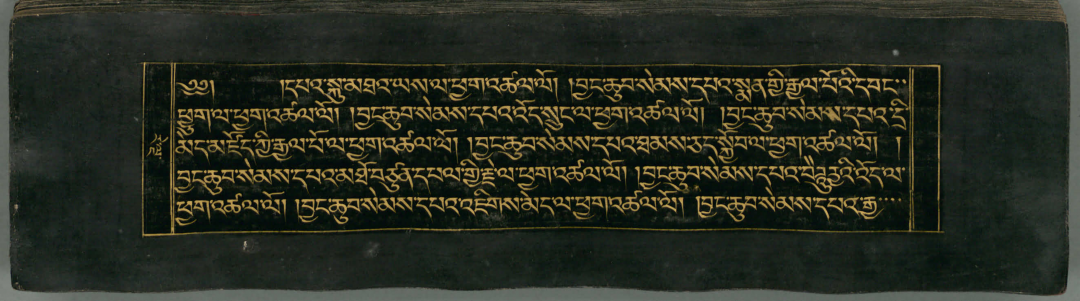 ༄༅། །དཔའ་སྐུ་མཐའ་ཡས་ལ་ཕྱག་འཚལ་ལོ། །བྱང་ཆུབ་སེམས་དཔའ་སྨན་གྱི་རྒྱལ་པོའི་དབང་
ཕྱུག་ལ་ཕྱག་འཚལ་ལོ། །བྱང་ཆུབ་སེམས་དཔའ་འོད་སྲུང་ལ་ཕྱག་འཚལ་ལོ། །བྱང་ཆུབ་སེམས་དཔའ་དྲི་
མེད་མཛོད་ཀྱི་རྒྱལ་པོ་ལ་ཕྱག་འཚལ་ལོ། །བྱང་ཆུབ་སེམས་དཔའ་ཐམས་ཅད་སྒྲོལ་ལ་ཕྱག་འཚལ་ལོ། །
བྱང་ཆུབ་སེམས་དཔའ་མཐོ་བཙུན་དཔལ་གྱི་རྩེ་ལ་ཕྱག་འཚལ་ལོ། །བྱང་ཆུབ་སེམས་དཔའ་བཻཌཱུརྱའི་འོད་ལ་
ཕྱག་འཚལ་ལོ། །བྱང་ཆུབ་སེམས་དཔའ་འཇིགས་མེད་ལ་ཕྱག་འཚལ་ལོ། །བྱང་ཆུབ་སེམས་དཔའ་རྒྱ་